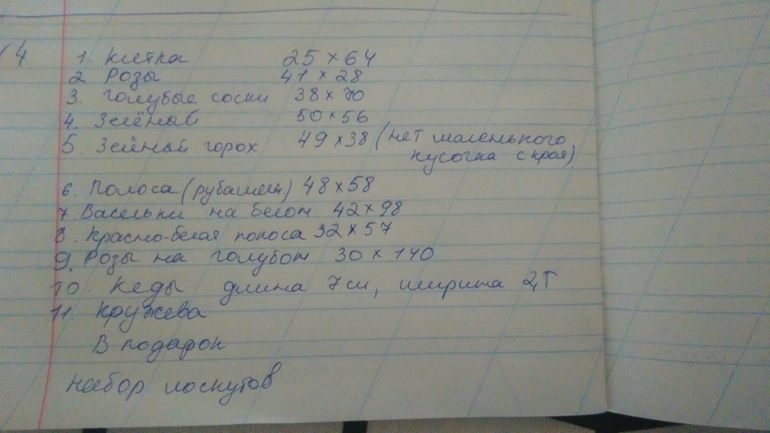 4
1. Клетка 25 × 64
2 Розы 41 × 28
3. Голубые соски 38 × 70
4. Зелёная 50 × 56
5. Зелёный горох 49 × 38 (нет маленького
кусочка с края)
6. Полоса (рубашечн) 48 × 58
7. Васельки на белом 42 × 98
8. Красно-белая полоса 32 × 57
9. Розы на голубом 30 × 140
10. Кеды длина 7 см, ширина 2,
11. Кружева
В подарок
Набор лоскутов